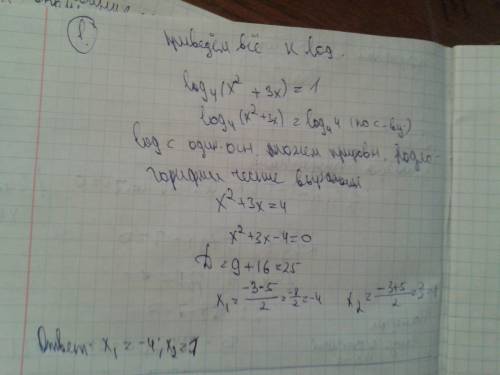 1.
приведём всё к log.
log₄(x² + 3x) = 1
log₄(x²+3x) = log₄4 (по св-ву)
log с один. осн. можем приравн. подло-
гарифмические выражения
x²+3x=4
x²+3x-4=0
D=9+16=25
x₁=(-3-5)/2=-8/2=-4 x₂=(-3+5)/2=
Ответ: x₁=-4; x₂=1